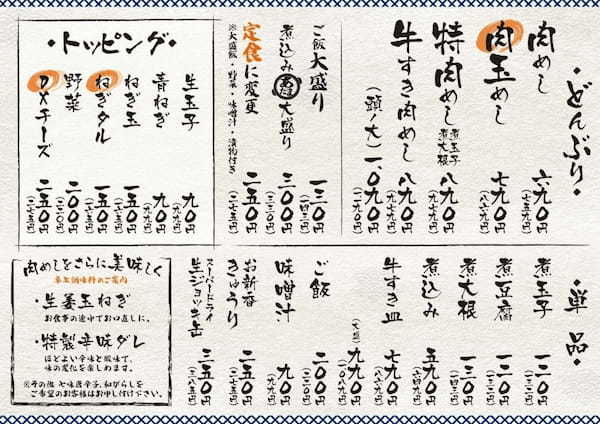 ・どんぶり・
肉めし 六九〇円
(七五九円)
肉玉めし 七九〇円
(八六九円)
特肉めし 煮玉子 煮大根 八九〇円
(九七九円)
牛すき肉めし 八九〇円
(九七九円)
(頭ノ大) 一、〇九〇円
(一一九九円)
ご飯大盛り 一三〇円
(一四三円)
煮込みあたま大盛り 三〇〇円
(三三〇円)
定食に変更 二五〇円
(二七五円)
※大盛飯・野菜・味噌汁・漬物付き
・トッピング・
生玉子 九〇円
(九九円)
青ねぎ 九〇円
(九九円)
ねぎ玉 一五〇円
(一六五円)
ねぎタル 一五〇円
(一六五円)
野菜 二〇〇円
(二二〇円)
DXチーズ 二五〇円
(二七五円)
・単品・
煮玉子 一三〇円
(一四三円)
煮豆腐 一三〇円
(一四三円)
煮大根 一三〇円
(一四三円)
煮込み 五九〇円
(六四九円)
牛すき皿 七九〇円
(八六九円)
(大盛) 九九〇円
(一、〇八九円)
ご飯 二〇〇円
(二二〇円)
味噌汁 九〇円
(九九円)
お新香
きゅうり 二五〇円
(二七五円)
スーパードライ
生ジョッキ缶 三五〇円
(三八五円)
肉めしをさらに美味しく
卓上調味料のご案内
・生姜玉ねぎ
お食事の途中でお口直しに。
・特製辛味ダレ
ほどよい辛味と酸味で、
味の変化を楽しめます。
※その他、七味唐辛子、和がらしを
ご希望のお客様はお申し付け下さい。